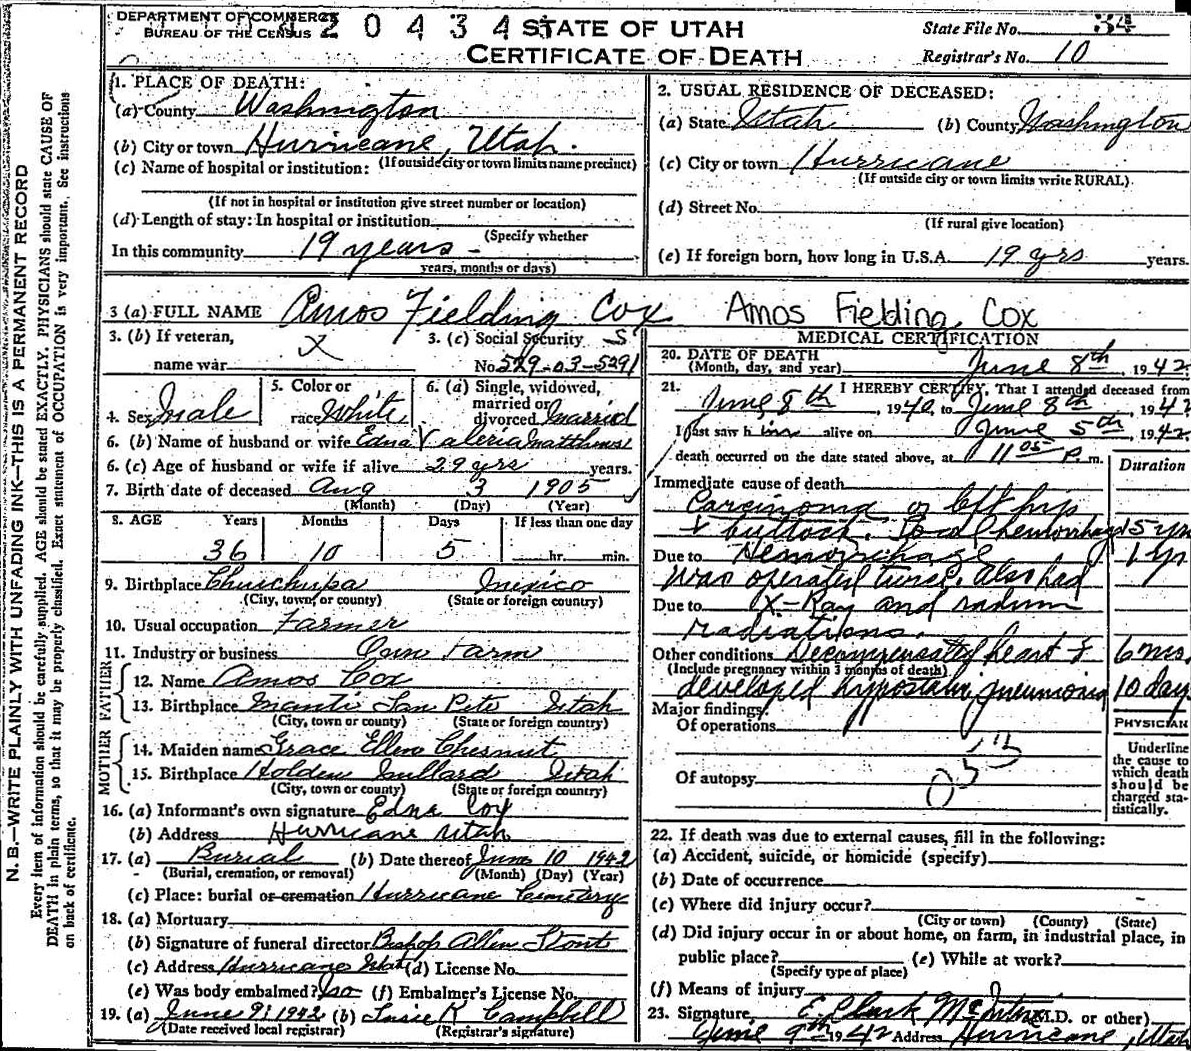 DEPARTMENT OF COMMERCE
BUREAU OF THE CENSUS
2 0 4 3 4
STATE OF UTAH
CERTIFICATE OF DEATH
State File No. 34
Registrar's No. 10
N.B.—WRITE PLAINLY WITH UNFADING INK—THIS IS A PERMANENT RECORD
Every item of information should be carefully supplied. AGE should be stated EXACTLY. PHYSICIANS should state CAUSE OF
DEATH in plain terms, so that it may be properly classified. Exact statement of OCCUPATION is very important. See instructions
on back of certificate.
1. PLACE OF DEATH:
(a) County Washington
(b) City or town Hurricane, Utah.
(If outside city or town limits name precinct)
(c) Name of hospital or institution:
(If not in hospital or institution give street number or location)
(d) Length of stay: In hospital or institution
(Specify whether
In this community 19 years -
years, months or days)
2. USUAL RESIDENCE OF DECEASED:
(a) State Utah (b) County Washington
(c) City or town Hurricane
(If outside city or town limits write RURAL)
(d) Street No.
(If rural give location)
(e) If foreign born, how long in U.S.A. 19 yrs years.
3 (a) FULL NAME Amos Fielding Cox Amos Fielding Cox
3. (b) If veteran, name war X
3. (c) Social Security No. 529-03-5291
4. Sex Male
5. Color or race White
6. (a) Single, widowed, married or divorced Married
6. (b) Name of husband or wife Edna Valeria Matthews
6. (c) Age of husband or wife if alive 29 yrs years.
7. Birth date of deceased Aug 3 1905
(Month) (Day) (Year)
8. AGE Years Months Days If less than one day
36 10 5 hr. min.
9. Birthplace Chuichupa Mexico
(City, town, or county) (State or foreign country)
10. Usual occupation Farmer
11. Industry or business Own Farm
FATHER
12. Name Amos Cox
13. Birthplace Manti San Pete Utah
(City, town or county) (State or foreign country)
MOTHER
14. Maiden name Grace Ellen Chesnut
15. Birthplace Holden Millard Utah
(City, town or county) (State or foreign country)
16. (a) Informant's own signature Edna Cox
(b) Address Hurricane Utah
17. (a) Burial (b) Date thereof June 10 1942
(Burial, cremation, or removal) (Month) (Day) (Year)
(c) Place: burial or cremation Hurricane Cemetary
18. (a) Mortuary
(b) Signature of funeral director Bishop Allen Stout
(c) Address Hurricane Utah (d) License No.
(e) Was body embalmed? No (f) Embalmer's License No.
19. (a) June 9, 1942 (b) Susie K Campbell
(Date received local registrar) (Registrar's signature)
MEDICAL CERTIFICATION
20. DATE OF DEATH
(Month, day, and year) June 8th, 1942
21. I HEREBY CERTIFY, That I attended deceased from
June 8th, 1940, to June 8th, 1942
I last saw him alive on June 5th, 1942
death occurred on the date stated above, at 11 05 P. m.
Duration
Immediate cause of death
Carcinoma of left hip
& buttock. Local hemorrhage 5 yrs
Due to Hemorrhage 1 yr
Was operated twice. Also had
Due to X-Ray and radium
radiations.
Other conditions Decompensated heart & 6 mo.
(Include pregnancy within 3 months of death)
developed hypostatic pneumonia 10 days
Major findings:
Of operations
Of autopsy
PHYSICIAN
Underline
the cause to
which death
should be
charged sta-
tistically.
22. If death was due to external causes, fill in the following:
(a) Accident, suicide, or homicide (specify)
(b) Date of occurrence
(c) Where did injury occur?
(City or town) (County) (State)
(d) Did injury occur in or about home, on farm, in industrial place, in
public place? (e) While at work?
(Specify type of place)
(f) Means of injury
23. Signature, E. Clark McIntire (M.D. or other)
June 9th 1942 Address Hurricane, Utah